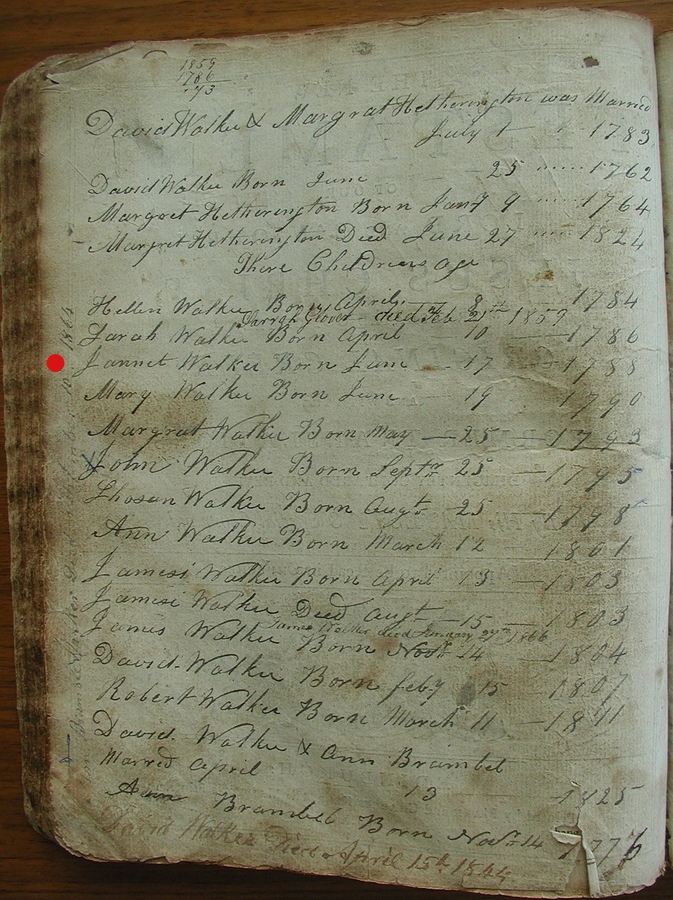 1859
1786
73
David Walker & Margrat Hetherington was Married
July 1 1783
David Walker Born June 25 1762
Margret Hetherington Born Jany 9 1764
Margret Hetherington Died June 27 1824
There Childrens age
Hellen Walker Born April 8 1784
Sarrah Glover died Feb 21st 1859
Sarah Walker Born April 10 1786
Jannet Walker Born June 17 1788
Mary Walker Born June 19 1790
Margrat Walker Born May 25 1793
John Walker Born Septr 25 1795
Walker Born Augt 25 1798
Ann Walker Born March 12 1801
James Walker Born April 13 1803
James Walker Died Augt 15 1803
James Walker died January 27th 1866
James Walker Born Novr 14 1804
David Walker Born feby 15 1807
Robert Walker Born March 11 1811
David Walker & Ann Brambel
Marred April 13 1825
Ann Brambel Born Novr 14 177
David Walker Died April 15th 1864